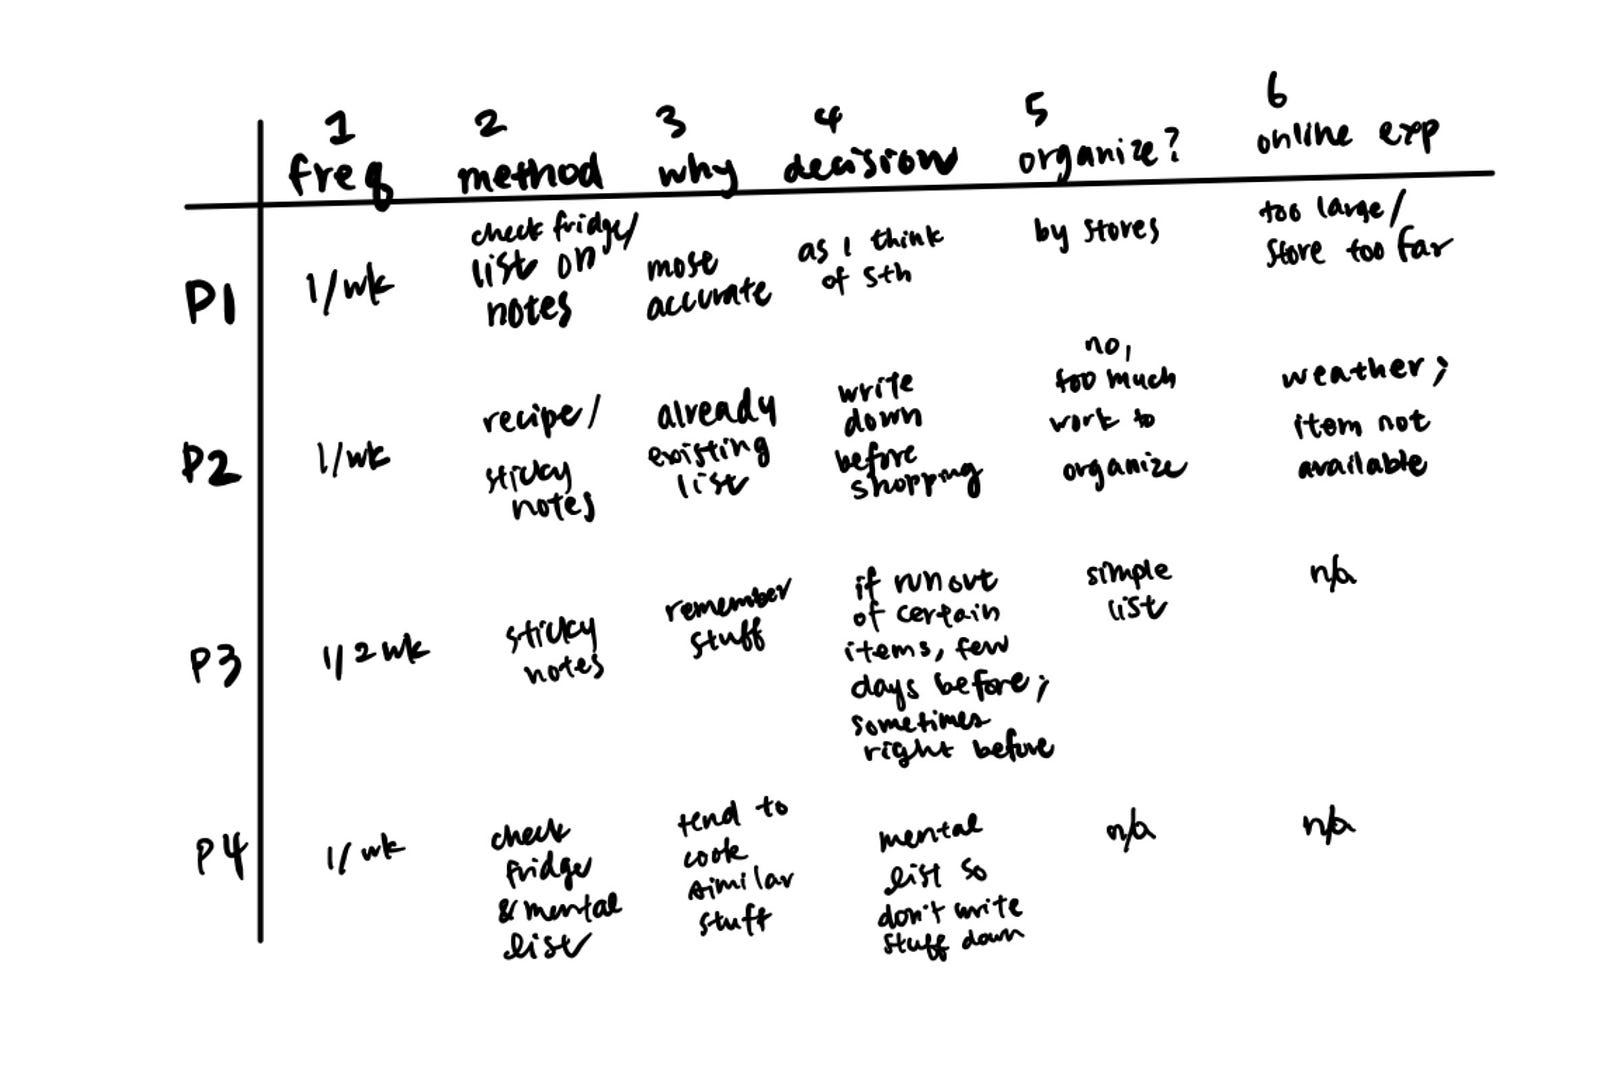 1 2 3 4 5 6
freq method why decision organize? online exp
P1
1/wk
check fridge/
list on
notes
most
accurate
as I think
of sth
by stores
too large/
store too far
P2
1/wk
recipe/
sticky
notes
already
existing
list
write
down
before
shopping
no,
too much
work to
organize
weather;
item not
available
P3
1/2 wk
sticky
notes
remember
stuff
if run out
of certain
items, few
days before;
sometimes
right before
simple
list
n/a
P4
1/wk
check
fridge
& mental
list
tend to
cook
similar
stuff
mental
list so
don't write
stuff down
n/a
n/a